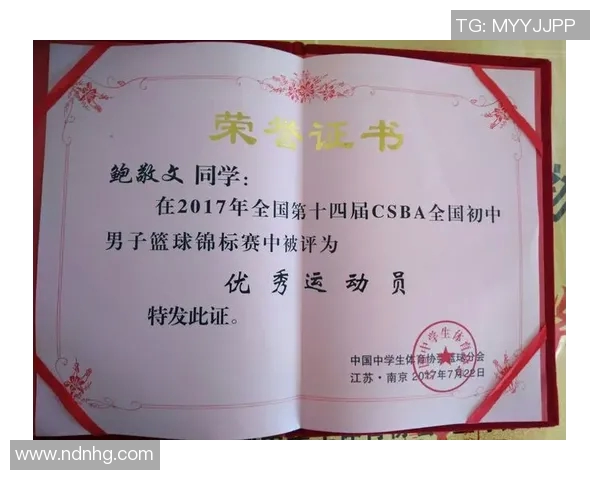 TG: MYYJJPP
荣誉证书
鲍敬文 同学：
在2017年全国第十四届CSBA全国初中
男子篮球锦标赛中被评为
优秀运动员
特发此证。
中国中学生体育协会篮球分会
江苏·南京 2017年7月22日
www.ndnhg.com